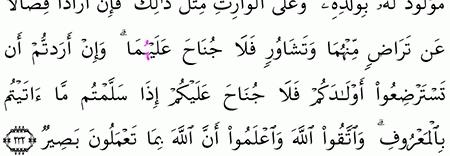 مَوْلُودٌ لَّهُۥ بِوَلَدِهِۦ ۚ وَعَلَى ٱلْوَارِثِ مِثْلُ ذَٰلِكَ ۗ فَإِنْ أَرَادَا فِصَالًا
عَن تَرَاضٍ مِّنْهُمَا وَتَشَاوُرٍ فَلَا جُنَاحَ عَلَيْهِمَا ۗ وَإِنْ أَرَدتُّمْ أَن
تَسْتَرْضِعُوٓا۟ أَوْلَـٰدَكُمْ فَلَا جُنَاحَ عَلَيْكُمْ إِذَا سَلَّمْتُم مَّآ ءَاتَيْتُم
بِٱلْمَعْرُوفِ ۗ وَٱتَّقُوا۟ ٱللَّهَ وَٱعْلَمُوٓا۟ أَنَّ ٱللَّهَ بِمَا تَعْمَلُونَ بَصِيرٌ ٢٣٣